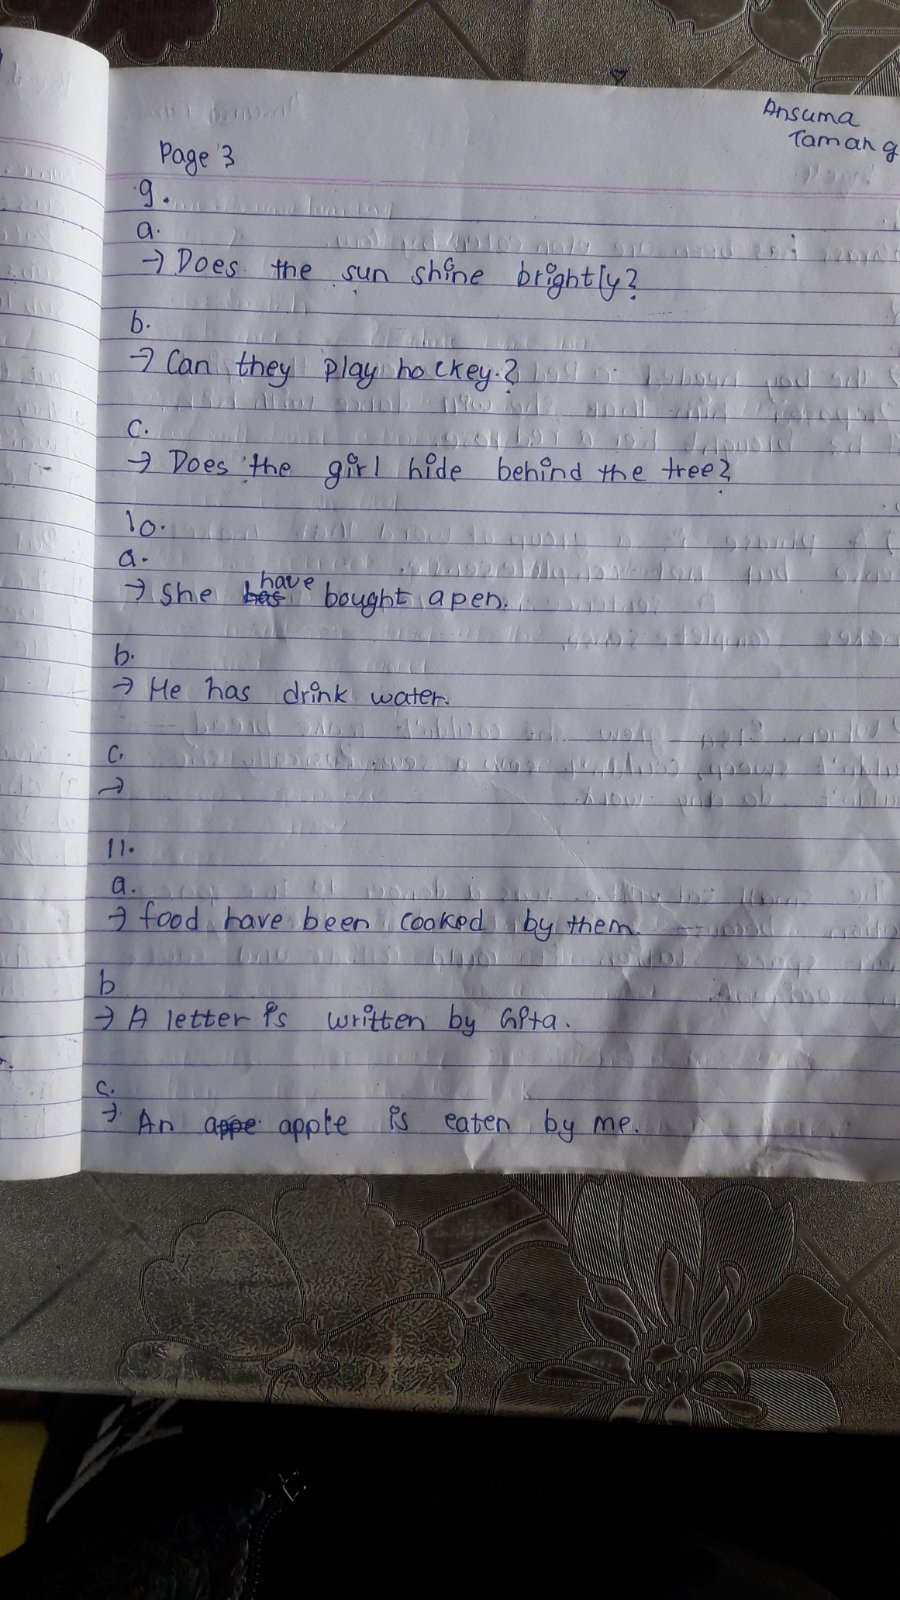 Ansuma
Tamang
Page 3
9.
a.
→ Does the sun shine brightly?
b.
→ Can they play hockey.?
c.
→ Does the girl hide behind the tree?
10.
a.
have
→ She has bought a pen.
b.
→ He has drink water.
c.
→
11.
a.
→ food have been cooked by them.
b
→ A letter is written by Gita.
c.
→ An appe apple is eaten by me.